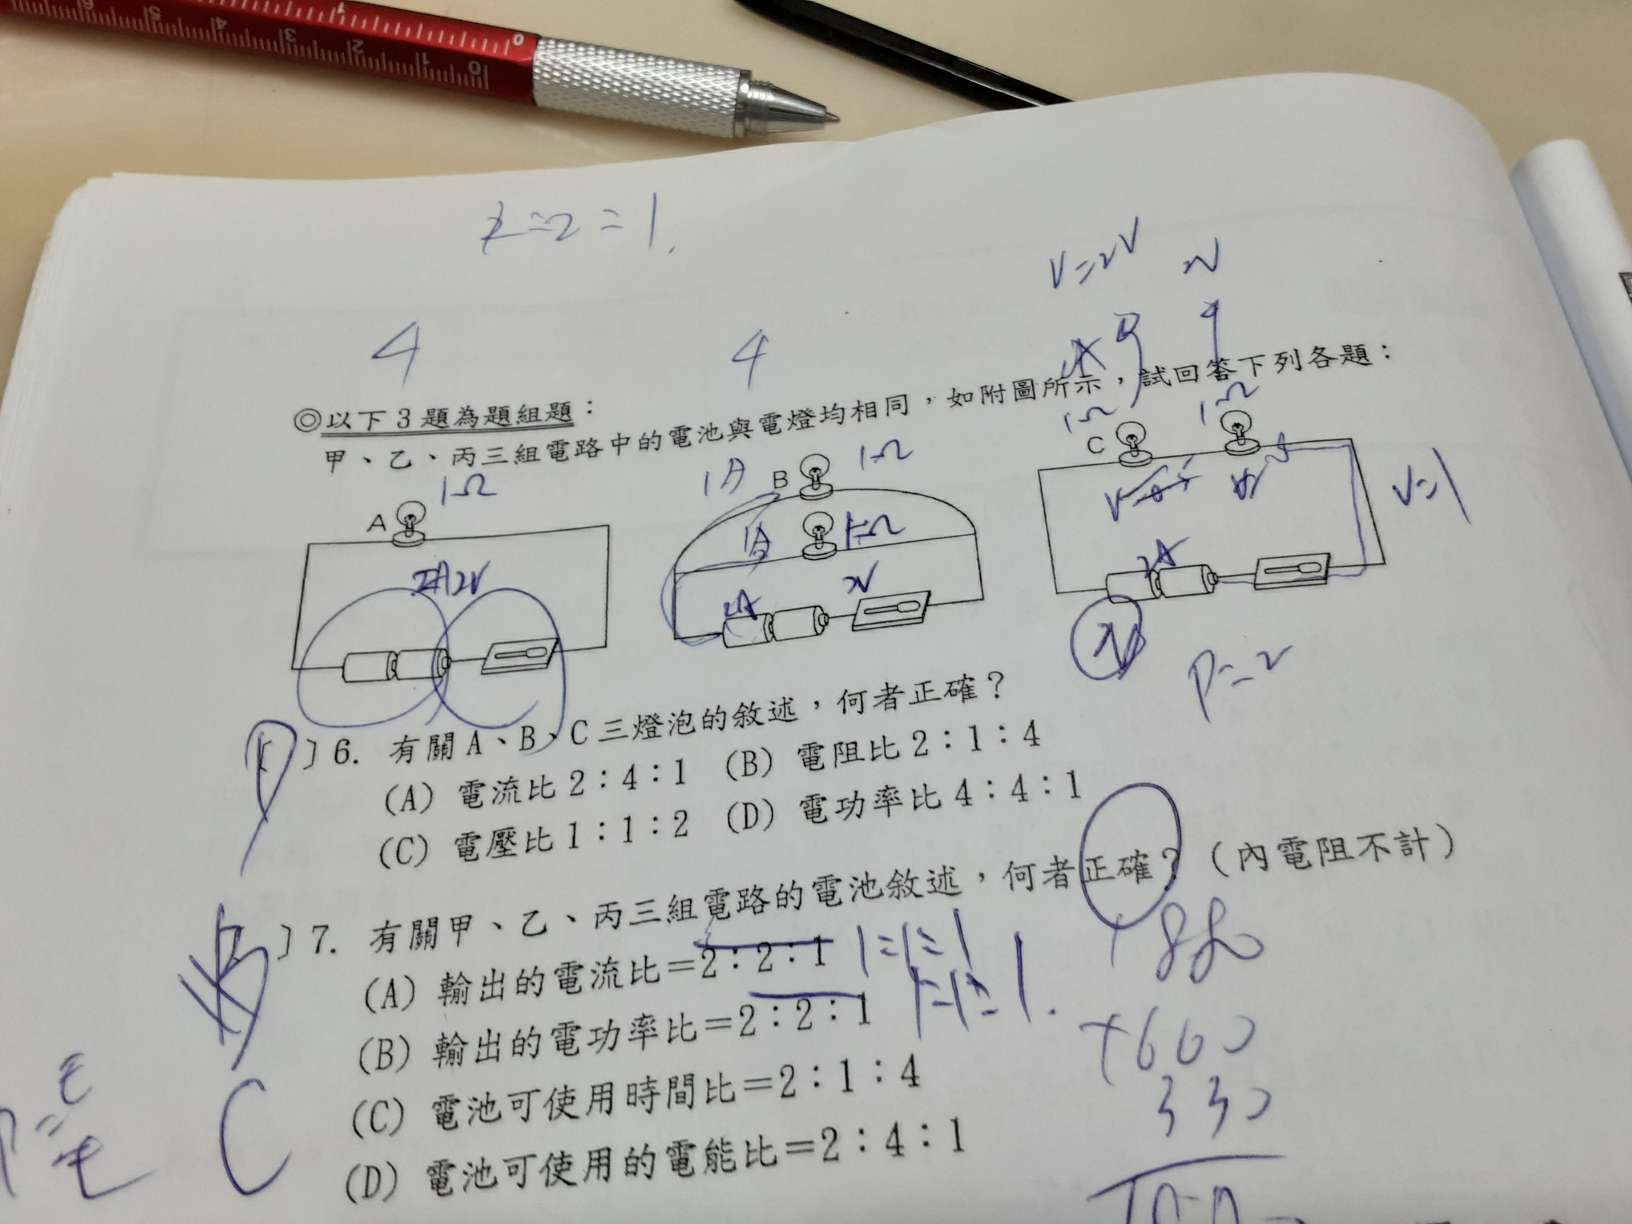 2=2=1.
V=2V
4
4
◎以下3題為題組題：
甲、乙、丙三組電路中的電池與電燈均相同，如附圖所示，試回答下列各題：
A
1Ω
1A
B
1Ω
1Ω
C
1Ω
1Ω
V=1
2A
2V
2A
2A
P=2
〕6. 有關A、B、C三燈泡的敘述，何者正確？
(A) 電流比2：4：1 (B) 電阻比2：1：4
(C) 電壓比1：1：2 (D) 電功率比4：4：1
〕7. 有關甲、乙、丙三組電路的電池敘述，何者正確？（內電阻不計）
(A) 輸出的電流比＝2：2：1
(B) 輸出的電功率比＝2：2：1
(C) 電池可使用時間比＝2：1：4
(D) 電池可使用的電能比＝2：4：1
1=1=1
1=1=1.
+880
+660
330
C